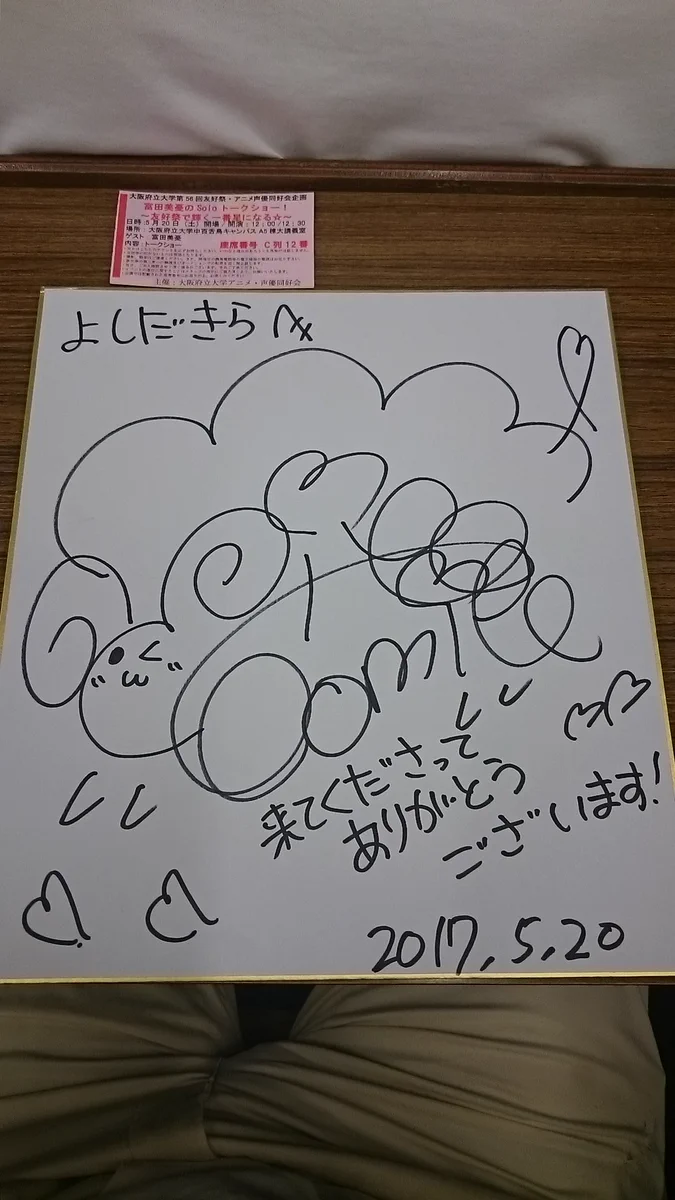 大阪府立大学第56回友好祭・アニメ声優同好会企画
富田美憂のSoloトークショー！
～友好祭で輝く一番星になる☆～
日時:5月20日（土）開場/開演:12:00/12:30
場所:大阪府立大学中百舌鳥キャンパスA5棟大講義室
ゲスト 富田美憂
内容:トークショー 座席番号 C列12番
主催:大阪府立大学アニメ・声優同好会
よしだきらへ
来てくださって
ありがとう
ございます!
2017.5.20